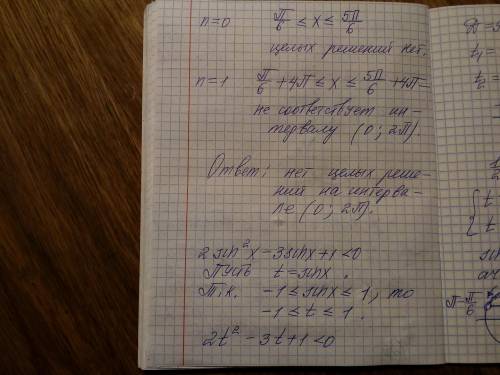 n=0 π/6 ≤ x ≤ 5π/6
целых решений нет.
n=1 π/6 +4π ≤ x ≤ 5π/6 +4π=
не соответствует ин-
тервалу (0; 2π).
Ответ: нет целых реше-
ний на интерва-
ле (0; 2π).
2sin²x-3sinx+1<0
Пусть t=sinx.
Т.к. -1≤sinx≤1, то
-1≤t≤1.
2t²-3t+1<0
t₁=
t₂=
1/2
{ t
t
sin
π-π/6